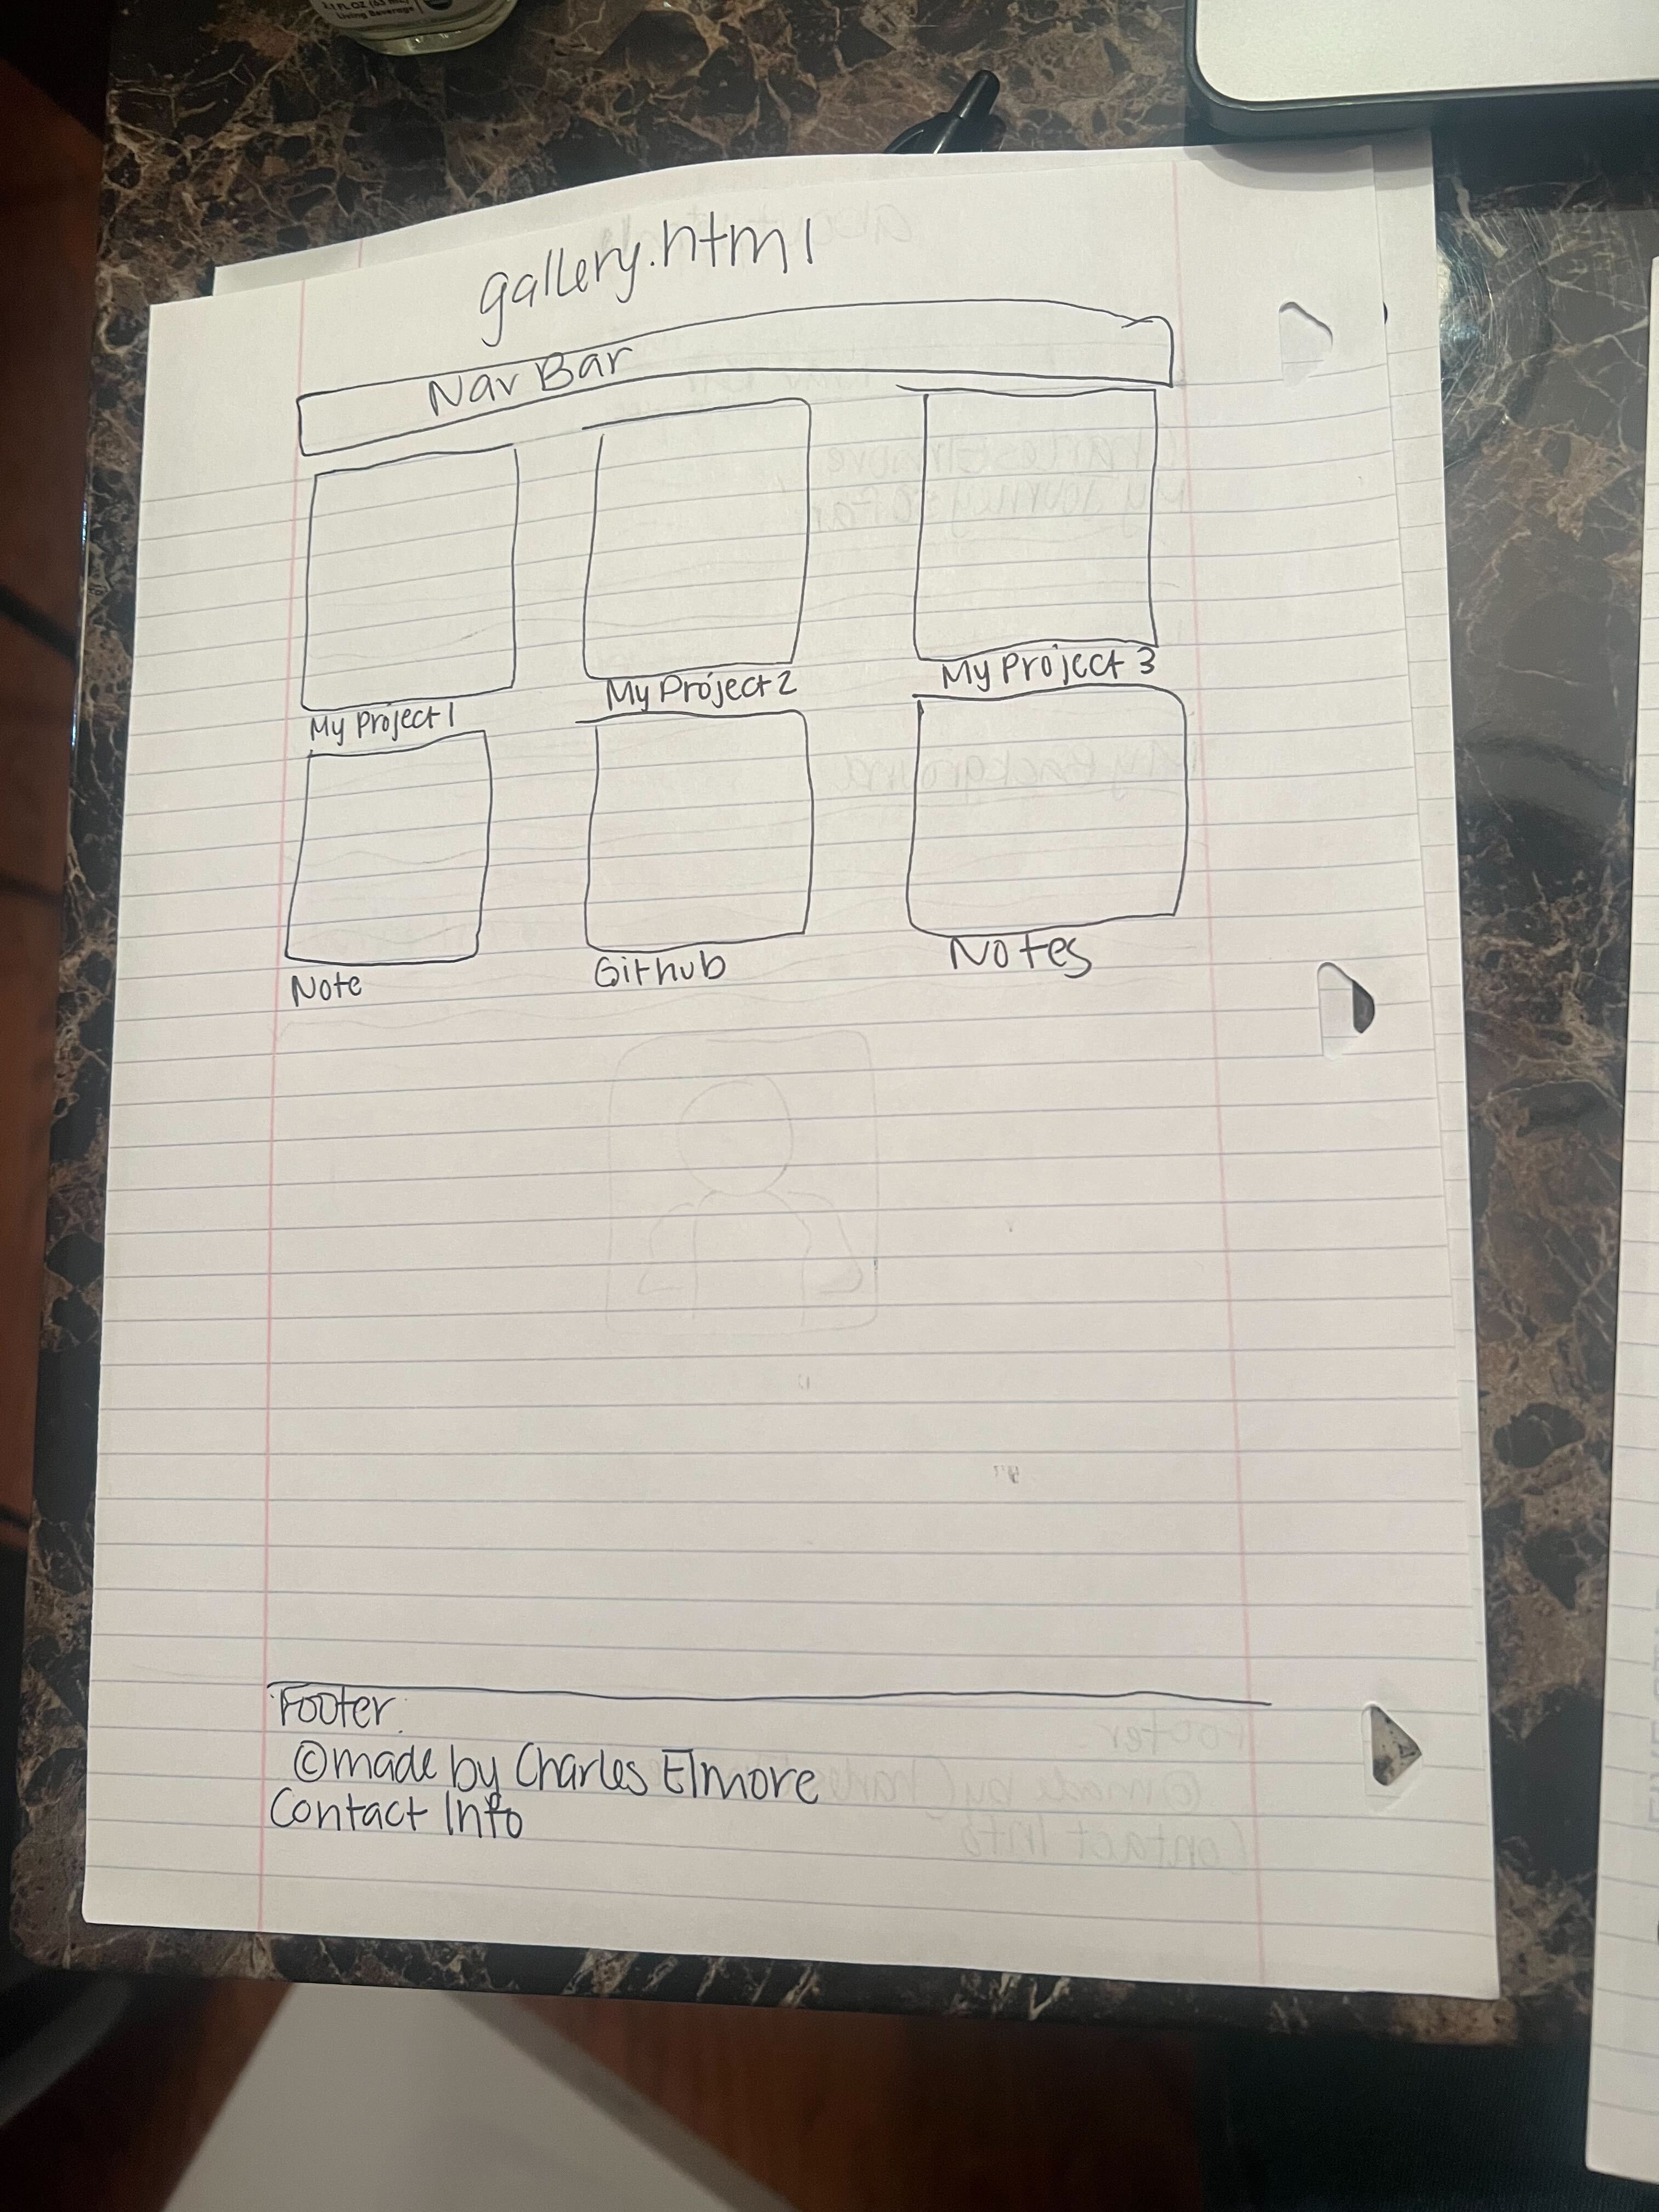 2.1 FL OZ (63 mL)
Living Beverage
gallery.html
Nav Bar
My Project 1
My Project 2
My Project 3
Note
Github
Notes
Footer
©made by Charles Elmore
Contact Info